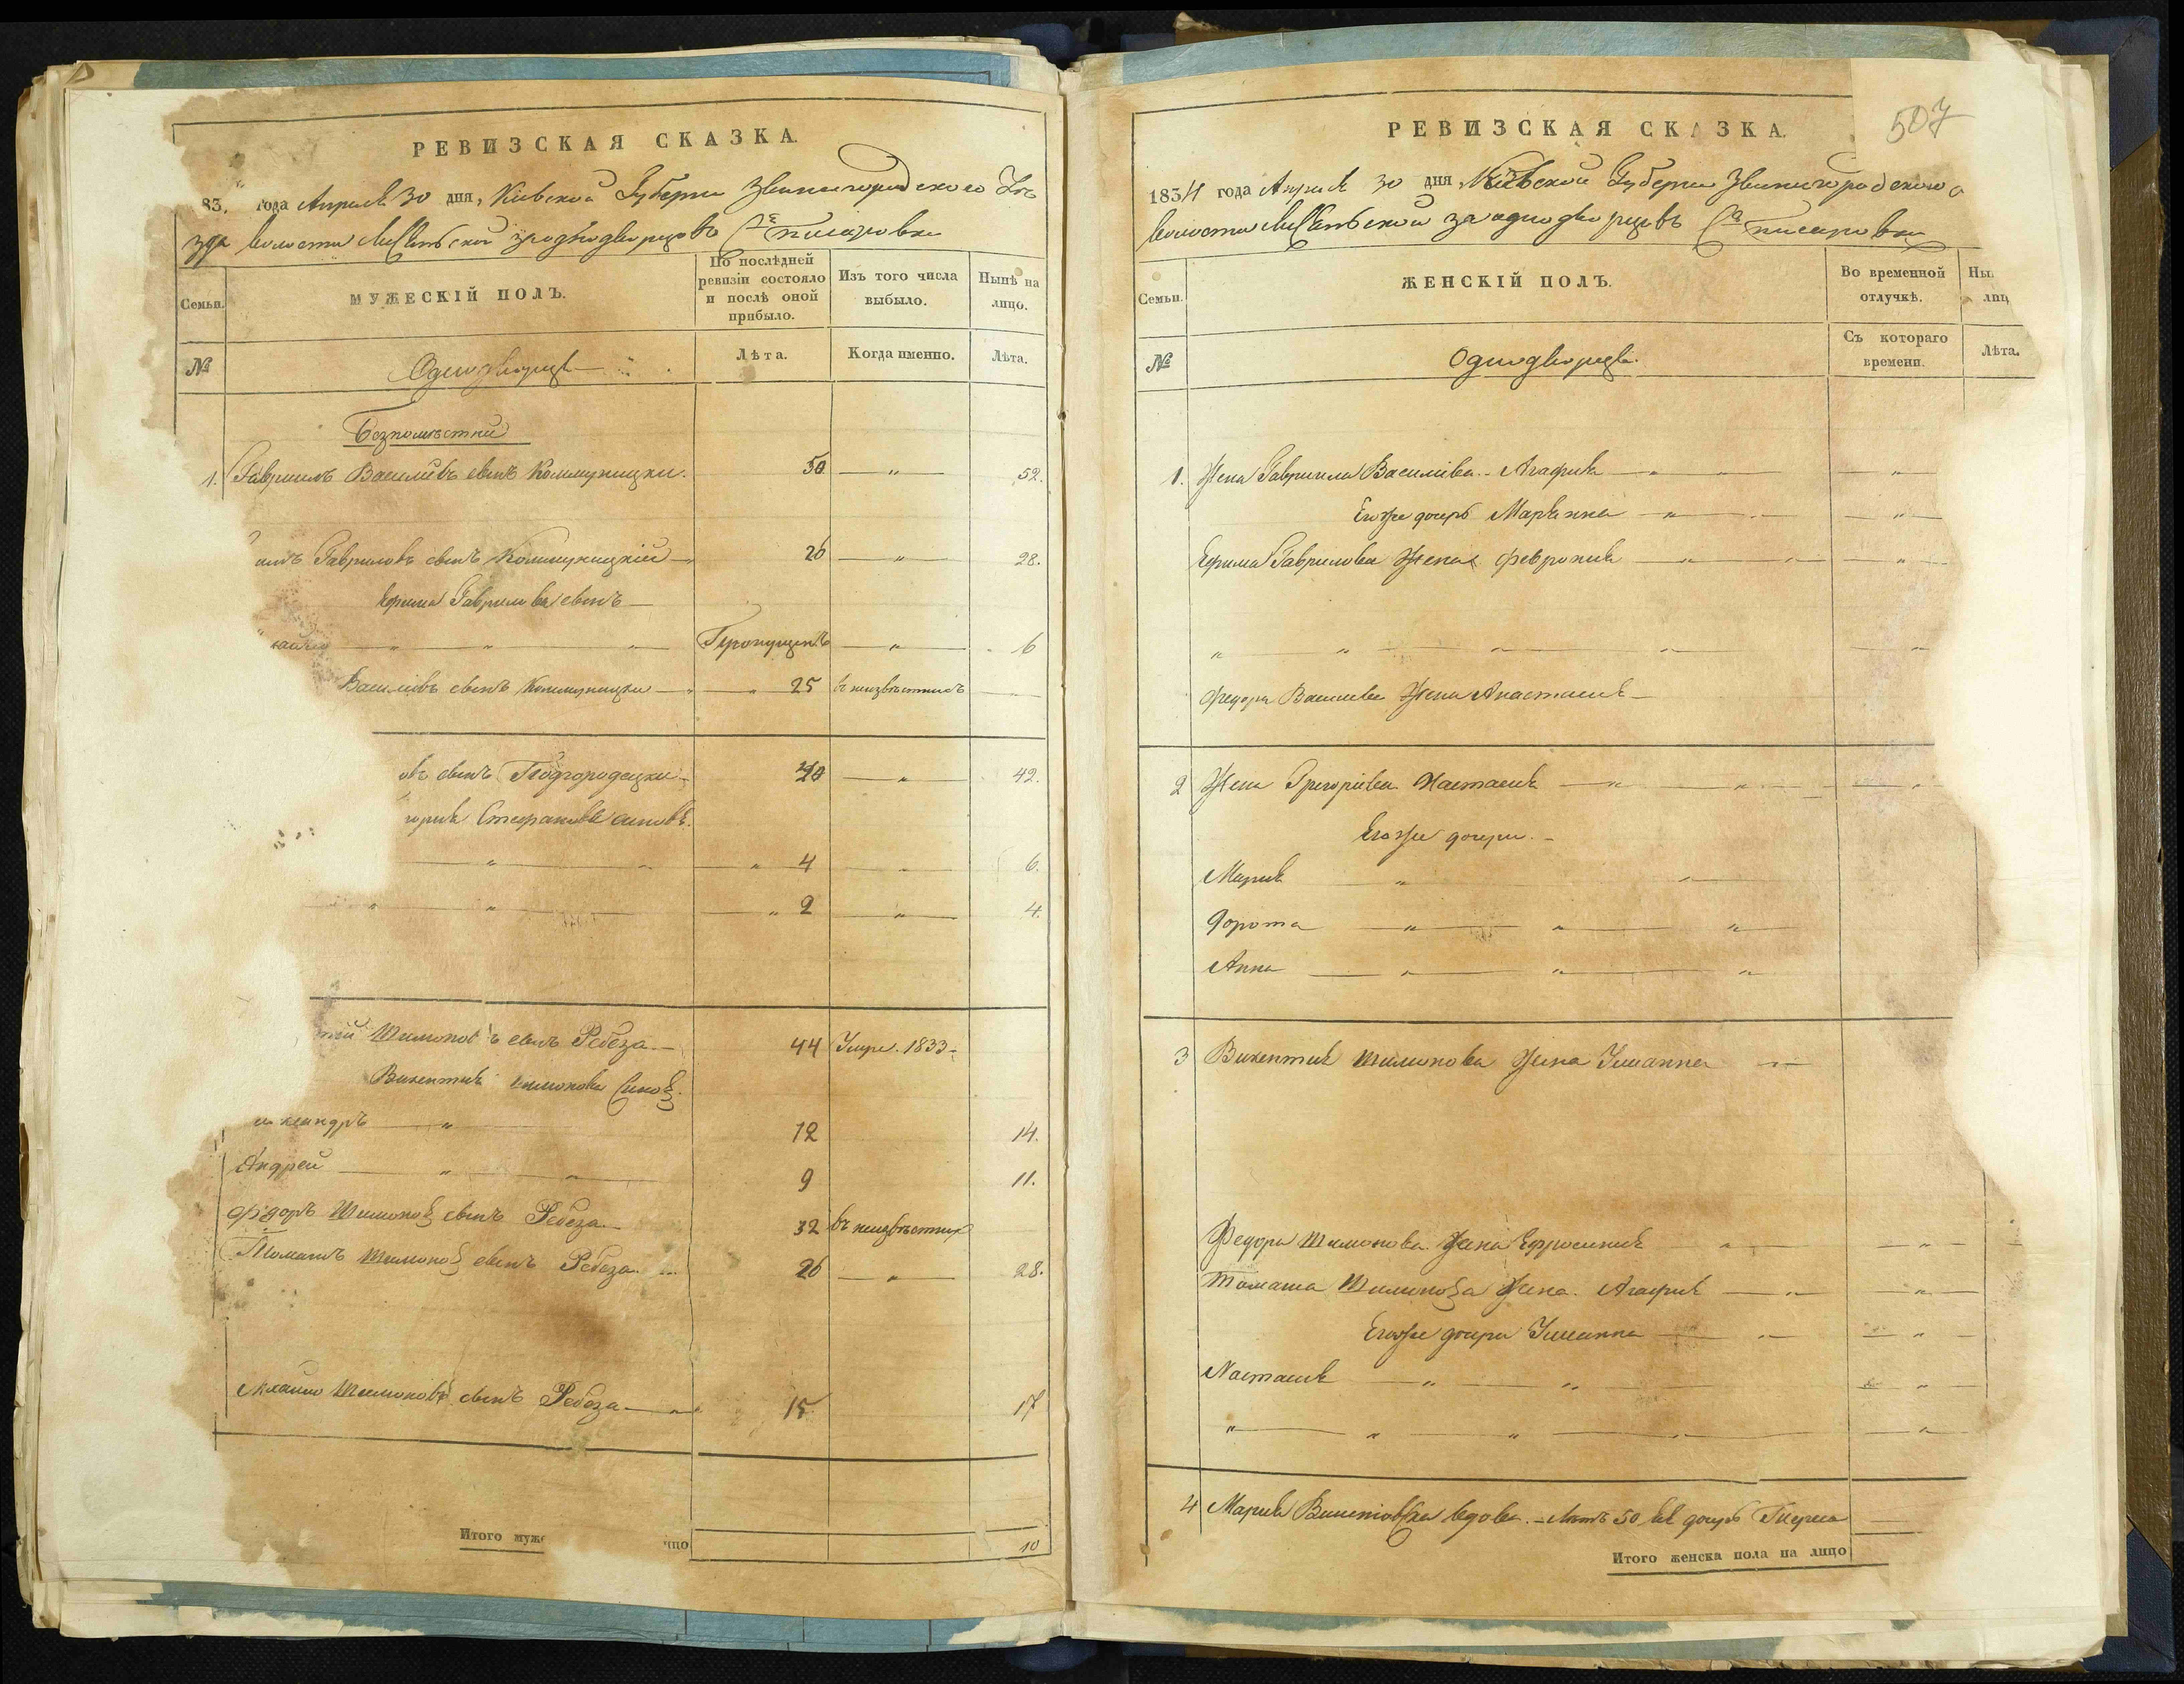 РЕВИЗСКАЯ СКАЗКА.
83. года Апреля 30 дня, Кіевской Губерніи Звенигородского Уѣ
зда волости одн одворцовъ Писаровки
Семьи.
МУЖЕСКІЙ ПОЛЪ.
По послѣдней ревизіи состояло и послѣ оной прибыло.
Изъ того числа выбыло.
Нынѣ на лицо.
№
Однодворцы
Лѣта.
Когда именно.
Лѣта.
Безпоместніи
1. Гавриилъ Василіевъ сынъ Коммуницки. 50 — " — 52.
Гавриловъ сынъ Коммуницкій — 26 — " — 28.
Ефима Гаврилова сынъ —
— " — " — " — Пропущенъ — " — 6
Василіевъ сынъ Коммуницки — " 25 въ неизвѣстныхъ —
овъ сынъ Подгородецки — 40 — " — 42.
горія Стефанова сыновѣ.
— " — " 4 — " — 6.
" — " — " 2 — " — 4.
тій Шимоновъ сынъ Ребеза — 44 Умре. 1833 -
Викентія Шимонова Сыновѣ.
ександръ — " 12 14.
Андрей — " — " — 9 11.
Федоръ Шимонов сынъ Ребеза — 32 въ неизвѣстных
Томашъ Шимонов сынъ Ребеза — 26 — " — 28.
Шимоновъ сынъ Ребеза — " 15 17
Итого муже ицо
10
507
РЕВИЗСКАЯ СКАЗКА.
1834 года Апреля 30 дня, Кіевской Губерніи Звенигородского
волости однодворцовъ Писаровки
Семьи.
ЖЕНСКІЙ ПОЛЪ.
Во временной отлучкѣ.
Ны лиц
№
Однодворцы.
Съ котораго времени.
Лѣта.
1. Жена Гавриила Василіева - Агафия — " — " — " —
Егоже дочерь Марianna — " — " —
Ефима Гаврилова Жена Феврония — " — " — " —
" — " — " — " — " —
Федора Василиева Жена Анастасия —
2 Жена Григоріева Настасия — " — " — " —
Егоже дочери. -
Мария " "
Дорота — " — " — " —
Анна — " — " — "
3 Викентия Шимонова Жена Юлианна — " —
Федора Шимонова Жена Ефросиния — " — — " —
Томаша Шимонова Жена. Агафия — " — — " —
Егоже дочери Юлианна — " — — " —
Настасия — " — " — — " —
" — " — " — " — — " —
4 Мария вдова. - Лѣтъ 50 дочерь Тереса
Итого женска пола на лицо